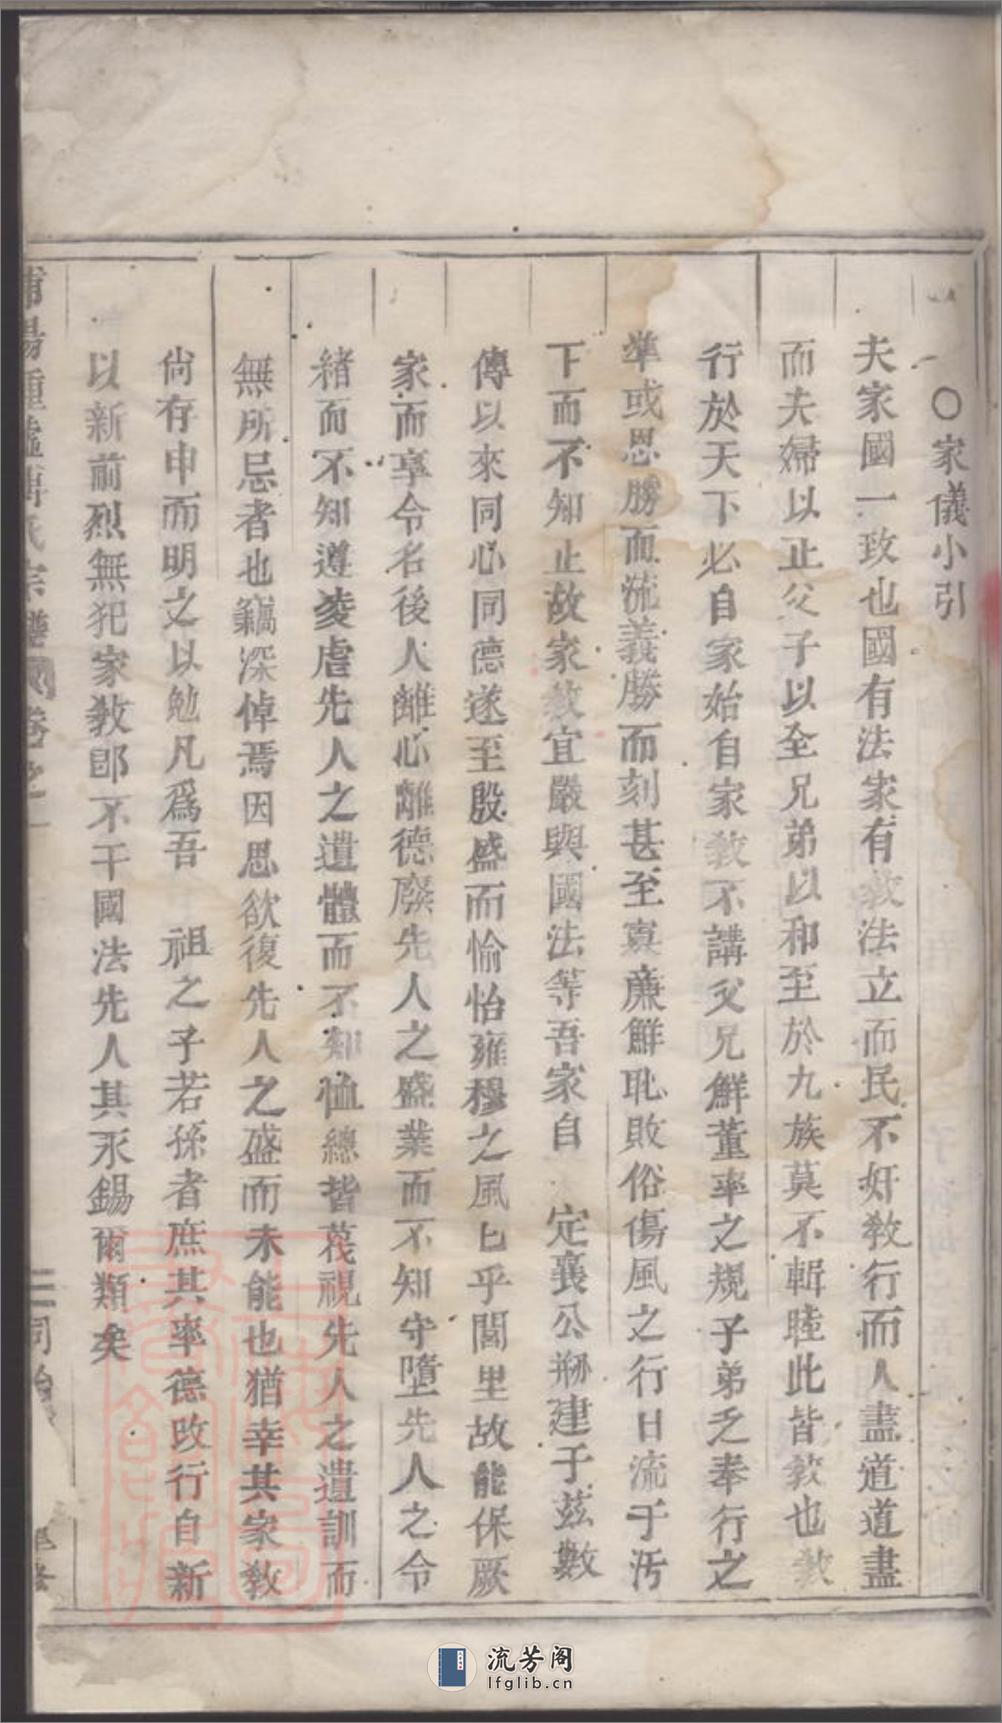 ○家儀小引
夫家國一致也國有法家有教法立而民不奸教行而人盡道道盡
而夫婦以止父子以全兄弟以和至於九族莫不輯睦此皆教也教
行於天下必自家始自家教不講父兄鮮董率之規子弟乏奉行之
準或恩勝而流義勝而刻甚至寡廉鮮恥敗俗傷風之行日流于汚
下而不知止故家教宜嚴與國法等吾家自 定襄公剏建于茲數
傳以來同心同德遂至殷盛而愉怡雍穆之風乜乎閭里故能保厥
家而享令名後人離心離德廢先人之盛業而不知守墮先人之令
緒而不知遵凌虐先人之遺體而不知恤總皆蔑視先人之遺訓而
無所忌者也竊深悼焉因思欲復先人之盛而未能也猶幸其家教
尙存申而明之以勉凡爲吾 祖之子若孫者庶其率德改行自新
以新前烈無犯家教卽不干國法先人其永錫爾類矣
宗譜 卷之一 二 同治
流芳阁
lfglib.cn